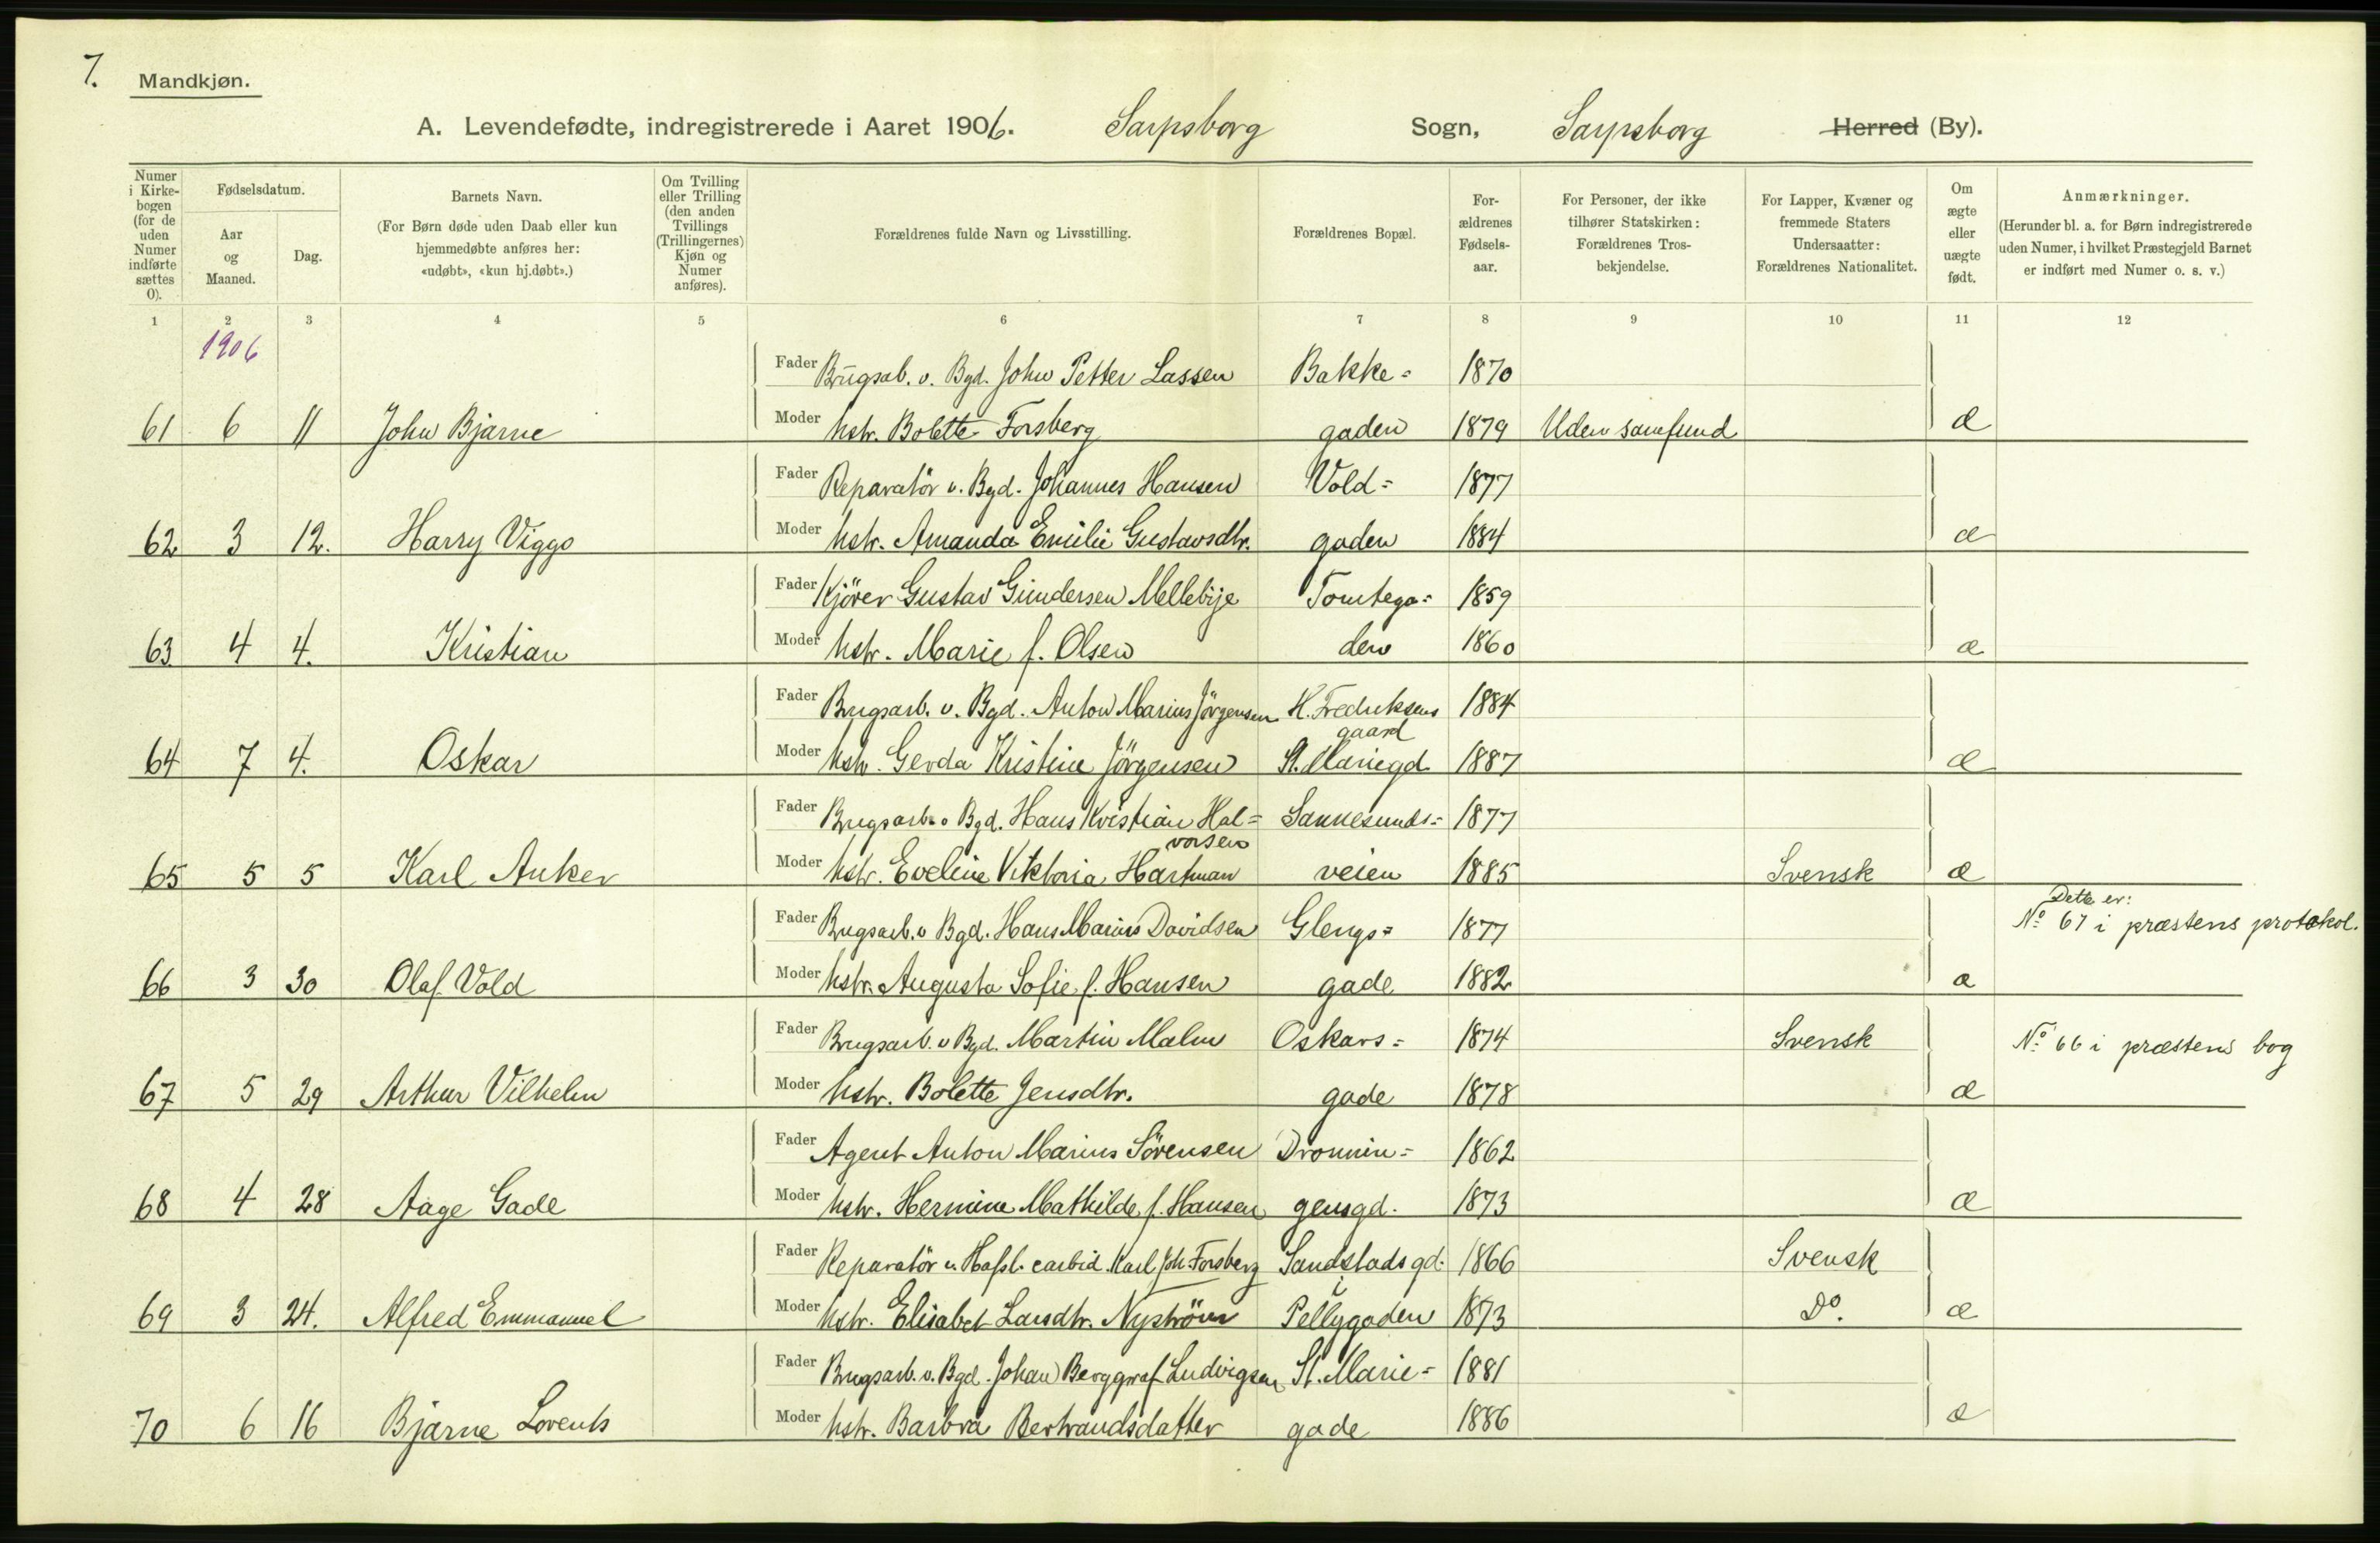 7.
Mandkjøn.
A. Levendefødte, indregistrerede i Aaret 1906. Sarpsborg Sogn, Sarpsborg Herred (By).
Numer i Kirkebogen (for de uden Numer indførte sættes 0).
Fødselsdatum.
Aar og Maaned.
Dag.
Barnets Navn.
(For Børn døde uden Daab eller kun hjemmedøbte anføres her: «udøbt», «kun hj.døbt».)
Om Tvilling eller Trilling (den anden Tvillings (Trillingernes) Kjøn og Numer anføres).
Forældrenes fulde Navn og Livsstilling.
Forældrenes Bopæl.
Forældrenes Fødselsaar.
For Personer, der ikke tilhører Statskirken: Forældrenes Trosbekjendelse.
For Lapper, Kvæner og fremmede Staters Undersaatter: Forældrenes Nationalitet.
Om ægte eller uægte født.
Anmærkninger.
(Herunder bl. a. for Børn indregistrerede uden Numer, i hvilket Præstegjeld Barnet er indført med Numer o. s. v.)
1 2 3 4 5 6 7 8 9 10 11 12
1906
Fader Brugsab. v. Bgd. John Petter Lassen Bakke= 1870
61 6 11 John Bjarne Moder hstr. Bolette Forsberg gaden 1879 Uden samfund æ
Fader Reparatör v. Bgd. Johannes Hansen Vold= 1877
62 3 12. Harry Viggo Moder hstr. Amanda Emilie Gustavsdtr. gaden 1884 æ
Fader Kjörer Gustav Gundersen Mellebije Tomtega= 1859
63 4 4. Kristian Moder hstr. Marie f. Olsen den 1860 æ
Fader Brugsarb. v. Bgd. Anton Marius Jörgensen H. Fredriksens gaard 1884
64 7 4. Oskar Moder hstr. Gerda Kristine Jörgensen St. Mariegd. 1887 æ
Fader Brugsarb. v Bgd. Hans Kristian Hal=vorsen Sannesunds= 1877
65 5 5 Karl Anker Moder hstr. Eveline Viktoria Hartman veien 1885 Svensk æ
Fader Brugsarb. v Bgd. Hans Marius Davidsen Glengs= 1877 Dette er: No 67 i præstens protokol.
66 3 30 Olaf Vold Moder hstr. Augusta Sofie f. Hansen gade 1882 æ
Fader Brugsarb. v Bgd. Martin Malm Oskars= 1874 Svensk No 66 i præstens bog
67 5 29 Arthur Vilhelm Moder hstr. Bolette Jensdtr. gade 1878 æ
Fader Agent Anton Marius Sörensen Dronnin= 1862
68 4 28 Aage Gade Moder hstr. Hermine Mathilde f. Hansen gensgd. 1873 æ
Fader Reparatör v. Hafsl. carbid. Karl Joh. Forsberg Sandstadsgd. i 1866 Svensk
69 3 24. Alfred Emmanuel Moder hstr. Elisabet Larsdtr. Nyström Pellygaden 1873 Do. æ
Fader Brugsarb. v. Bgd. Johan Berggraf Ludvigsen St. Marie= 1881
70 6 16 Bjarne Lorents Moder hstr. Barbra Bertrandsdatter gade 1886 æ